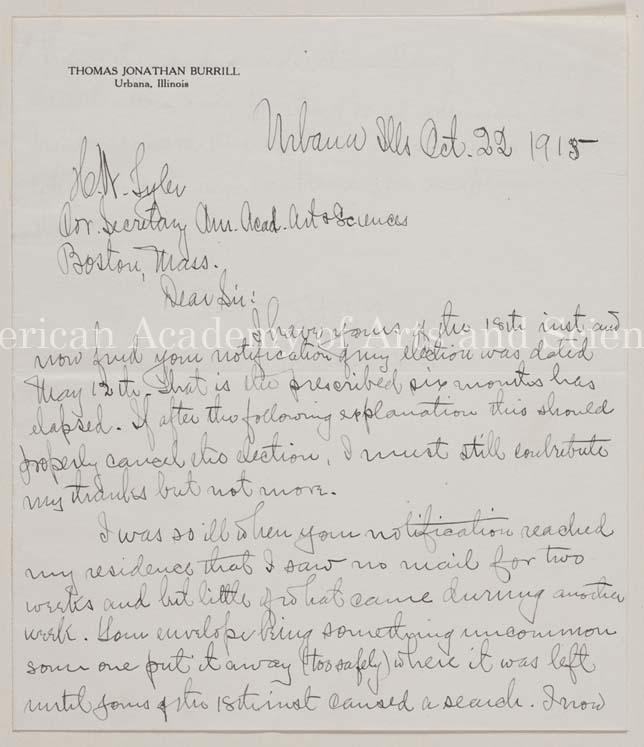 THOMAS JONATHAN BURRILL
Urbana, Illinois
Urbana Ills Oct. 22 1915
H. W. Tyler
Cor. Secretary Am. Acad. Art & Sciences
Boston, Mass.
Dear Sir:
I have yours of the 18th inst and
American Academy of Arts and Scien
now find your notification of my election was dated
May 12th. That is the prescribed six months has
elapsed. If after the following explanation this should
properly cancel the election, I must still contribute
my thanks but not more.
I was so ill when your notification reached
my residence that I saw no mail for two
weeks and but little of what came during another
week. Your envelope being something uncommon
some one put it away (too safely) where it was left
until yours of the 18th inst caused a search. I now